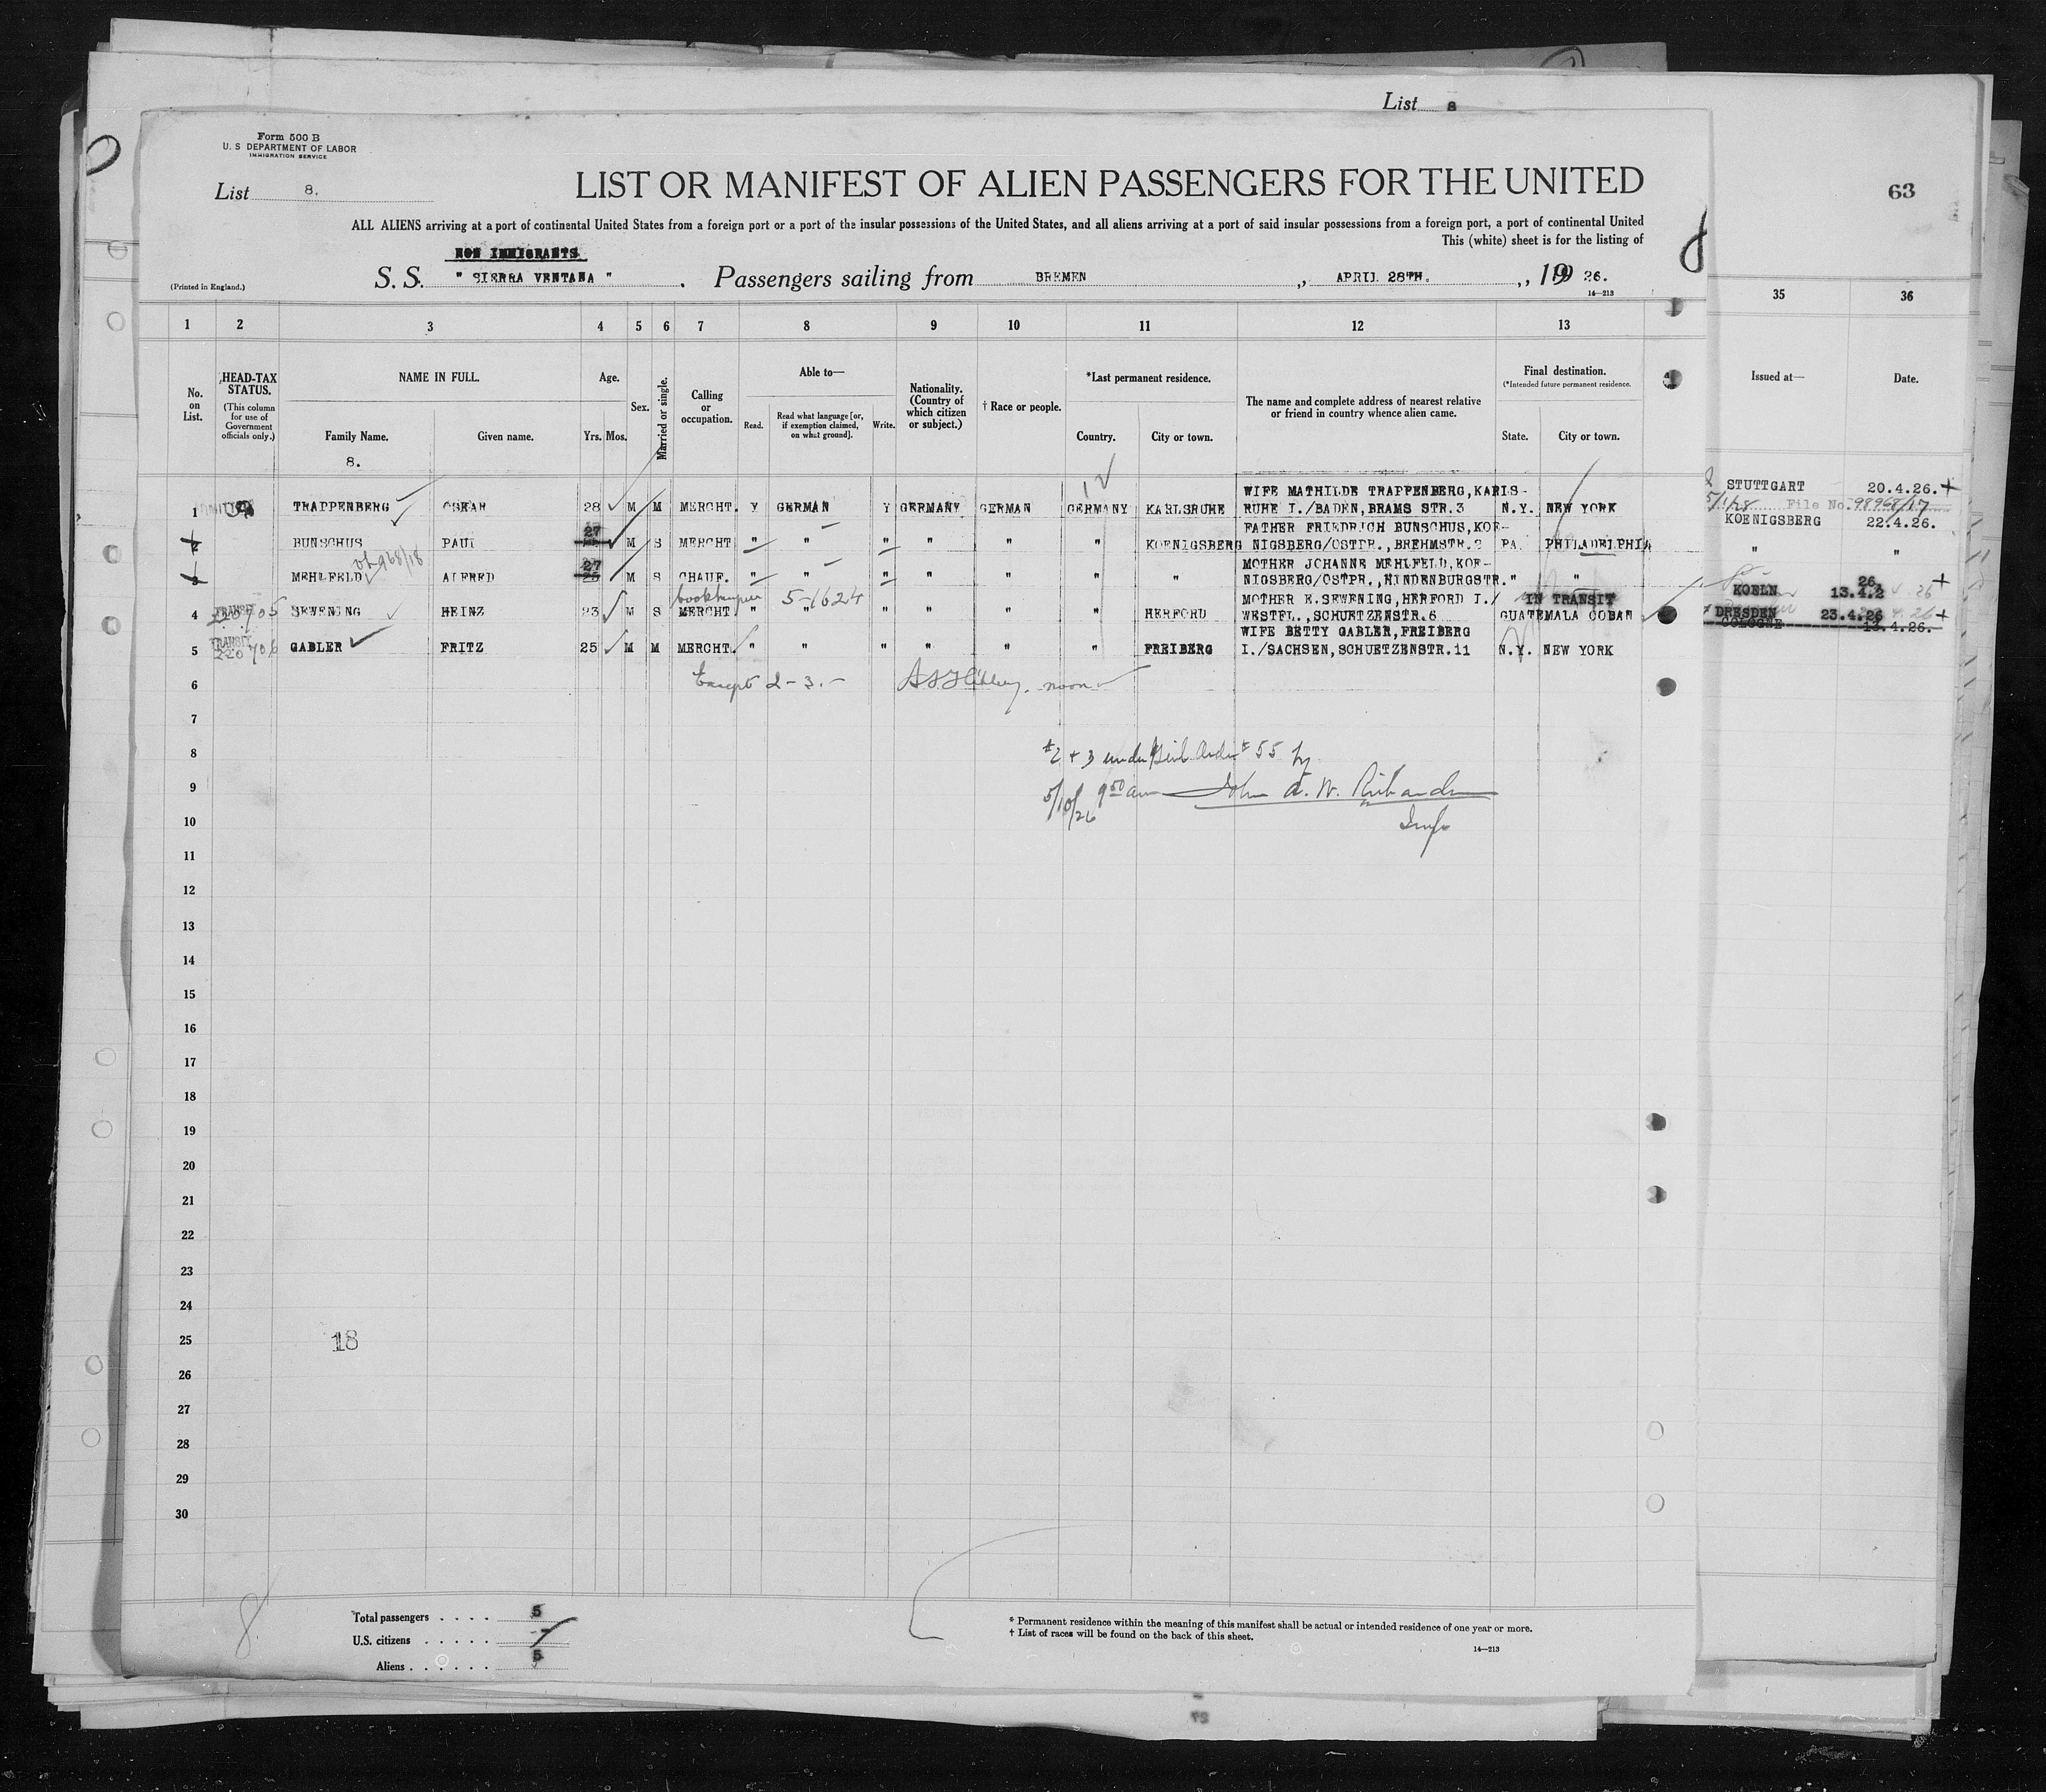 List 8
Form 500 B
U. S DEPARTMENT OF LABOR
IMMIGRATION SERVICE
List 8.
LIST OR MANIFEST OF ALIEN PASSENGERS FOR THE UNITED
63
ALL ALIENS arriving at a port of continental United States from a foreign port or a port of the insular possessions of the United States, and all aliens arriving at a port of said insular possessions from a foreign port, a port of continental United
This (white) sheet is for the listing of
NON IMMIGRANTS
(Printed in England.)
S. S. " SIERRA VENTANA " . Passengers sailing from BREMEN , APRIL 28TH. , 19 26.
14—213
1 2 3 4 5 6 7 8 9 10 11 12 13 35 36
No. on List.
HEAD-TAX STATUS.
(This column for use of Government officials only.)
NAME IN FULL.
Family Name. Given name.
Age.
Yrs. Mos.
Sex.
Married or single.
Calling or occupation.
Able to—
Read. Read what language [or, if exemption claimed, on what ground]. Write.
Nationality. (Country of which citizen or subject.)
† Race or people.
*Last permanent residence.
Country. City or town.
The name and complete address of nearest relative or friend in country whence alien came.
Final destination.
(*Intended future permanent residence.
State. City or town.
Issued at— Date.
8.
12
1 TRAPPENBERG OSKAR 28 M M MERCHT. Y GERMAN Y GERMANY GERMAN GERMANY KARLSRUHE WIFE MATHILDE TRAPPENBERG,KARLS-
RUHE I./BADEN,BRAMS STR.3 N.Y. NEW YORK STUTTGART 20.4.26.
5/1/28 File No. 98968/17
2 BUNSCHUS PAUL 27 M S MERCHT " " " " " " KOENIGSBERG FATHER FRIEDRICH BUNSCHUS,KOE-
NIGSBERG/OSTPR.,BREHMSTR.2 PA. PHILADELPHIA KOENIGSBERG 22.4.26.
3 MEHLFELD ALFRED 27 M S CHAUF. " " " " " " " MOTHER JOHANNE MEHLFELD,KOE-
NIGSBERG/OSTPR.,HINDENBURGSTR. " " " "
bookkeeper 5-1624
4 TRANSIT 220705 SEWENING HEINZ 23 M S MERCHT. " " " " " " HERFORD MOTHER E.SEWENING,HERFORD I./
WESTFL.,SCHUETZENSTR.6 IN TRANSIT
GUATEMALA COBAN KOELN 13.4.26
5 TRANSIT 220706 GABLER FRITZ 25 M M MERCHT. " " " " " " FREIBERG WIFE BETTY GABLER,FREIBERG
I./SACHSEN,SCHUETZENSTR.11 N.Y. NEW YORK DRESDEN 23.4.26
COLOGNE 13.4.26.
6 Except 2-3.- noon
7
8 #2 + 3 under Genl Order # 55 by
9 5/10/26 9 50 am John A. W. Richards
10 Insp
11
12
13
14
15
16
17
18
19
20
21
22
23
24
25 18
26
27
28
29
30
8
Total passengers . . . . 5
U.S. citizens . . . . . -
Aliens . . . . . . 5
* Permanent residence within the meaning of this manifest shall be actual or intended residence of one year or more.
† List of races will be found on the back of this sheet.
14—213